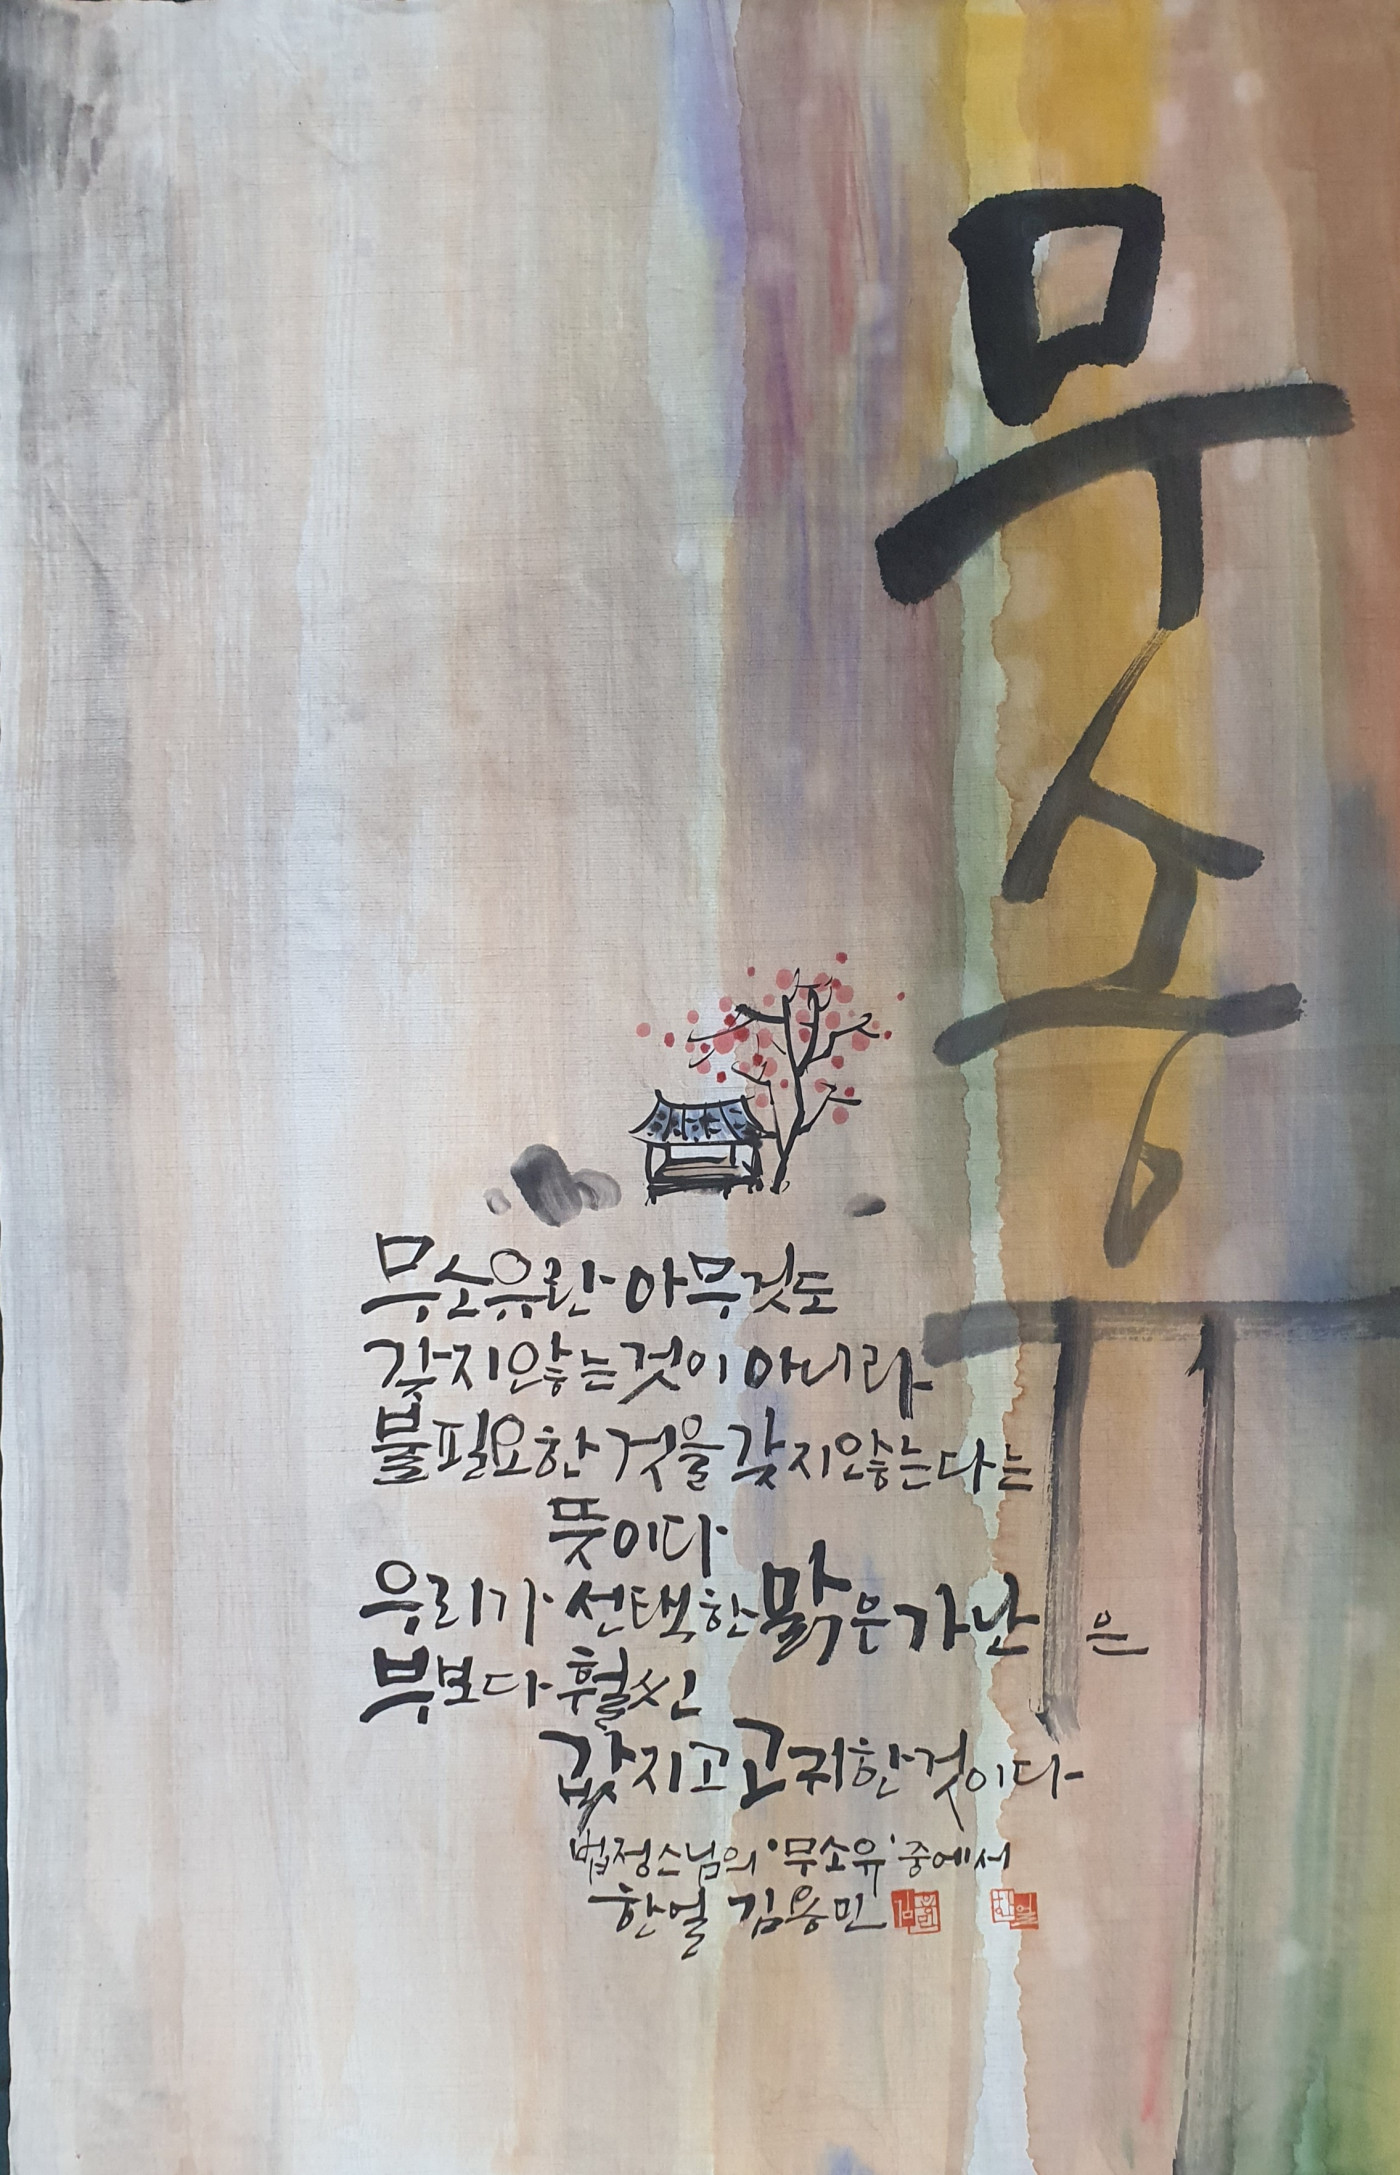 무소유
무소유란 아무것도
갖지 않는 것이 아니라
불필요한 것을 갖지 않는다는
뜻이다
우리가 선택한 맑은 가난은
부보다 훨씬
값지고 고귀한 것이다
법정스님의 '무소유' 중에서
한얼 김용민
한얼